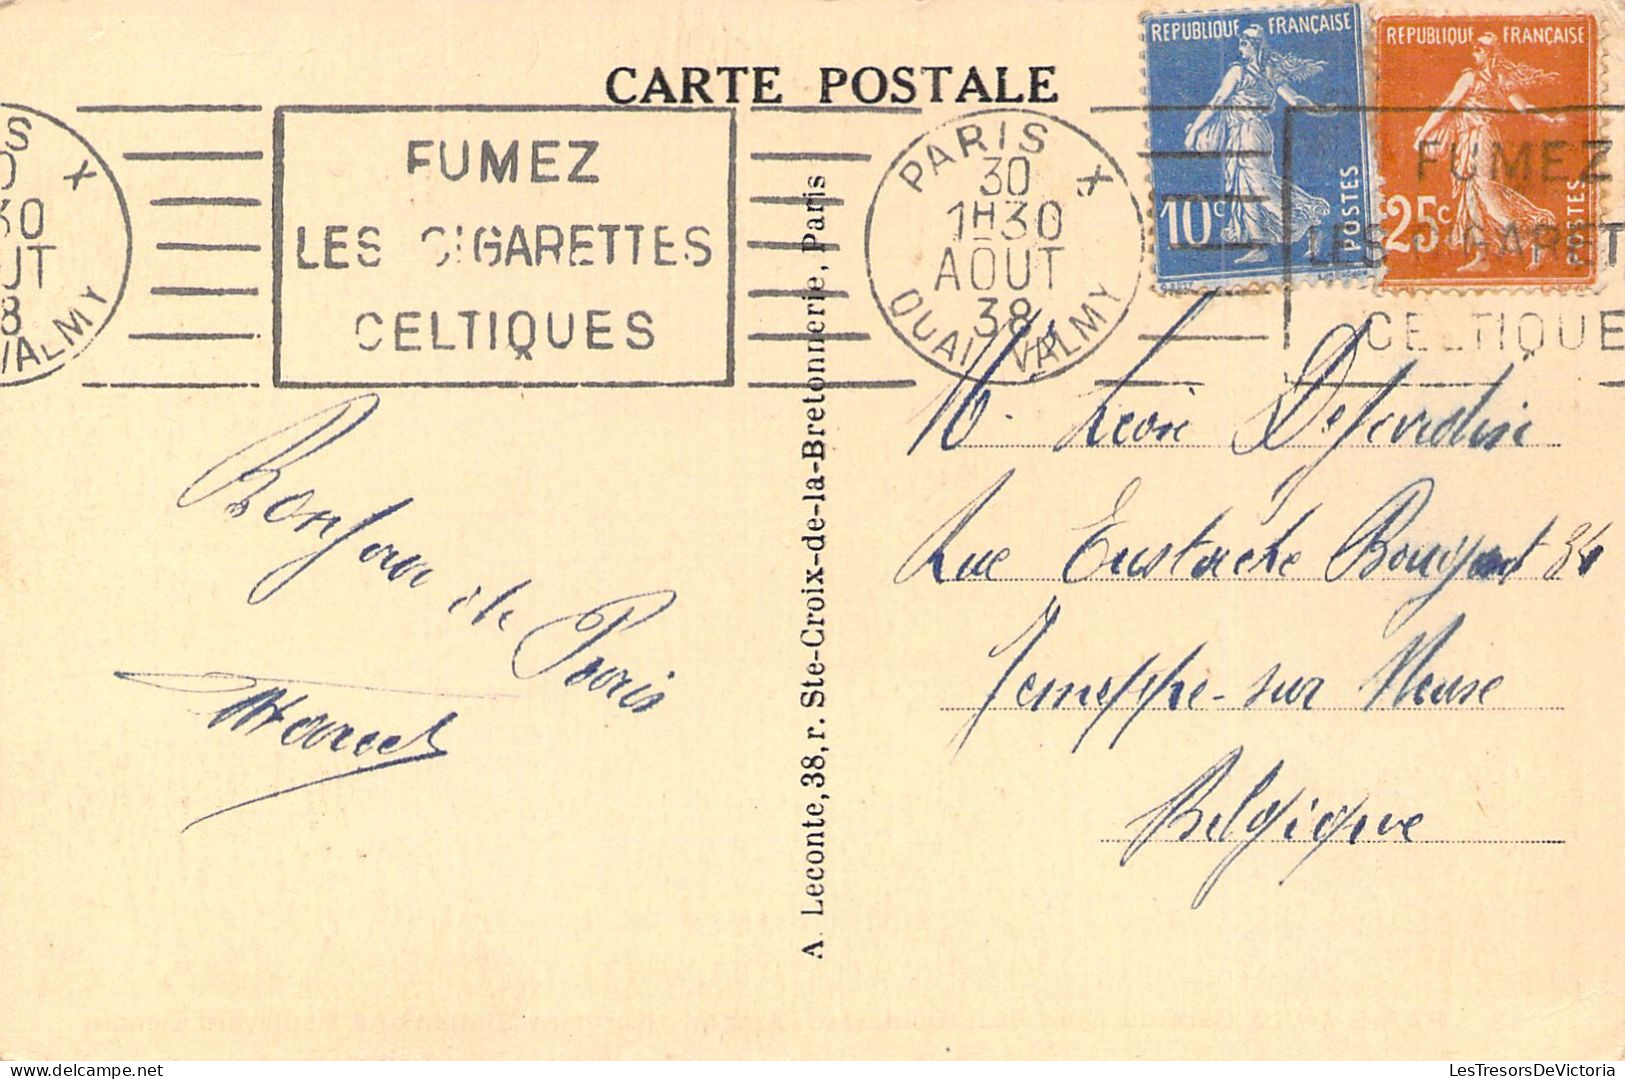 CARTE POSTALE
REPUBLIQUE FRANÇAISE
10c
POSTES
REPUBLIQUE FRANÇAISE
25c
POSTES
FUMEZ
LES CIGARETTES
CELTIQUES
PARIS X
30
1H30
AOUT
38
QUAI VALMY
FUMEZ
LES CIGARET
CELTIQUE
S X
30
UT
8
VALMY
Bonjour de
Paris
Marcel
A. Leconte, 38, r. Ste-Croix-de-la-Bretonnerie, Paris
M. Léon Dejardin
Rue Eustache 34
Jemeppe-sur Meuse
Belgique
LesTresorsDeVictoria.net
LesTresorsDeVictoria